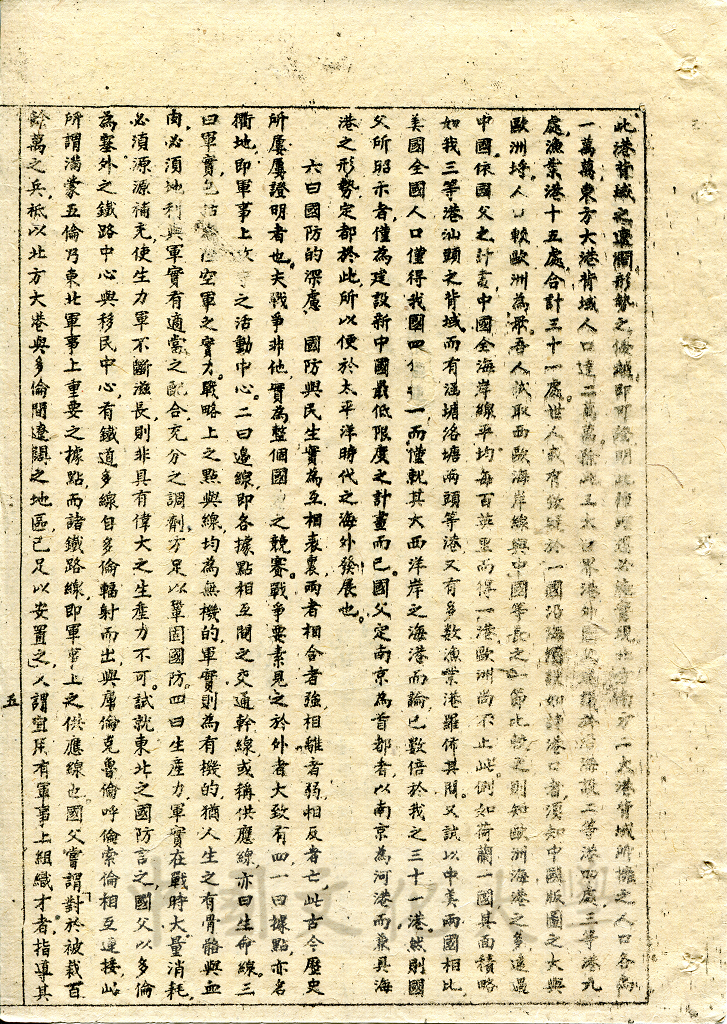 此港背域之遼闊形勢之優越即可證明此種理想必能實現北方南方二大港背域所擁之人口各為
一萬萬東方大港背域人口達二萬萬除此三大世界港外國父建議沿海設二等港四處三等港九
處漁業港十五處合計三十一處世人或有於一國沿海港口者須知中國版圖之大與
歐洲埒人口較歐洲為眾吾人試取西歐海岸線與中國等長之一節比較之則知歐洲海港之多遠過
中國依國父之計畫中國全海岸線平均每百英里而得一港歐洲尚不止此例如荷蘭一國其面積略
如我三等港汕頭之背域而有洛塘兩頭等港又有多數漁業港羅佈其間又試以中美兩國相比
美國全國人口僅得我國四一而僅就其大西洋岸之海港而論已數倍於我之三十一港然則國
父所昭示者僅為建設新中國最低限度之計畫而已國父定南京為首都者以南京為河港而兼具海
港之形勢定都於此所以便於太平洋時代之海外發展也
六曰國防的深慮 國防與民生實為互相表裏兩者相合者強相離者弱相反者亡此古今歷史
所屢屢證明者也夫戰爭非他實為整個國之競賽戰爭要素見之於外者大致有四一曰據點亦名
衢地即軍事上之活動中心二曰邊線即各據點相互間之交通幹線或稱供應線亦曰生命線三
曰軍實包括空軍之實力戰略上之點與線均為無機的軍實則為有機的猶人生之有骨骼與血
肉必須地利與軍實有適當之配合充分之調劑方足以鞏固國防四曰生產力軍實在戰時大量消耗
必須源源補充使生力軍不斷滋長則非具有偉大之生產力不可試就東北之國防言之國父以多倫
為塞外之鐵路中心與移民中心有鐵道多線自多倫輻射而出與庫倫克魯倫呼倫索倫相互連接此
所謂滿蒙五倫乃東北軍事上重要之據點而諸鐵路線即軍事上之供應線也國父嘗謂「對於被裁百
餘萬之兵祇以北方大港與多倫間遼闊之地區已足以安置之」人謂宜有軍事上組織才者指導其
五
中國文化大學